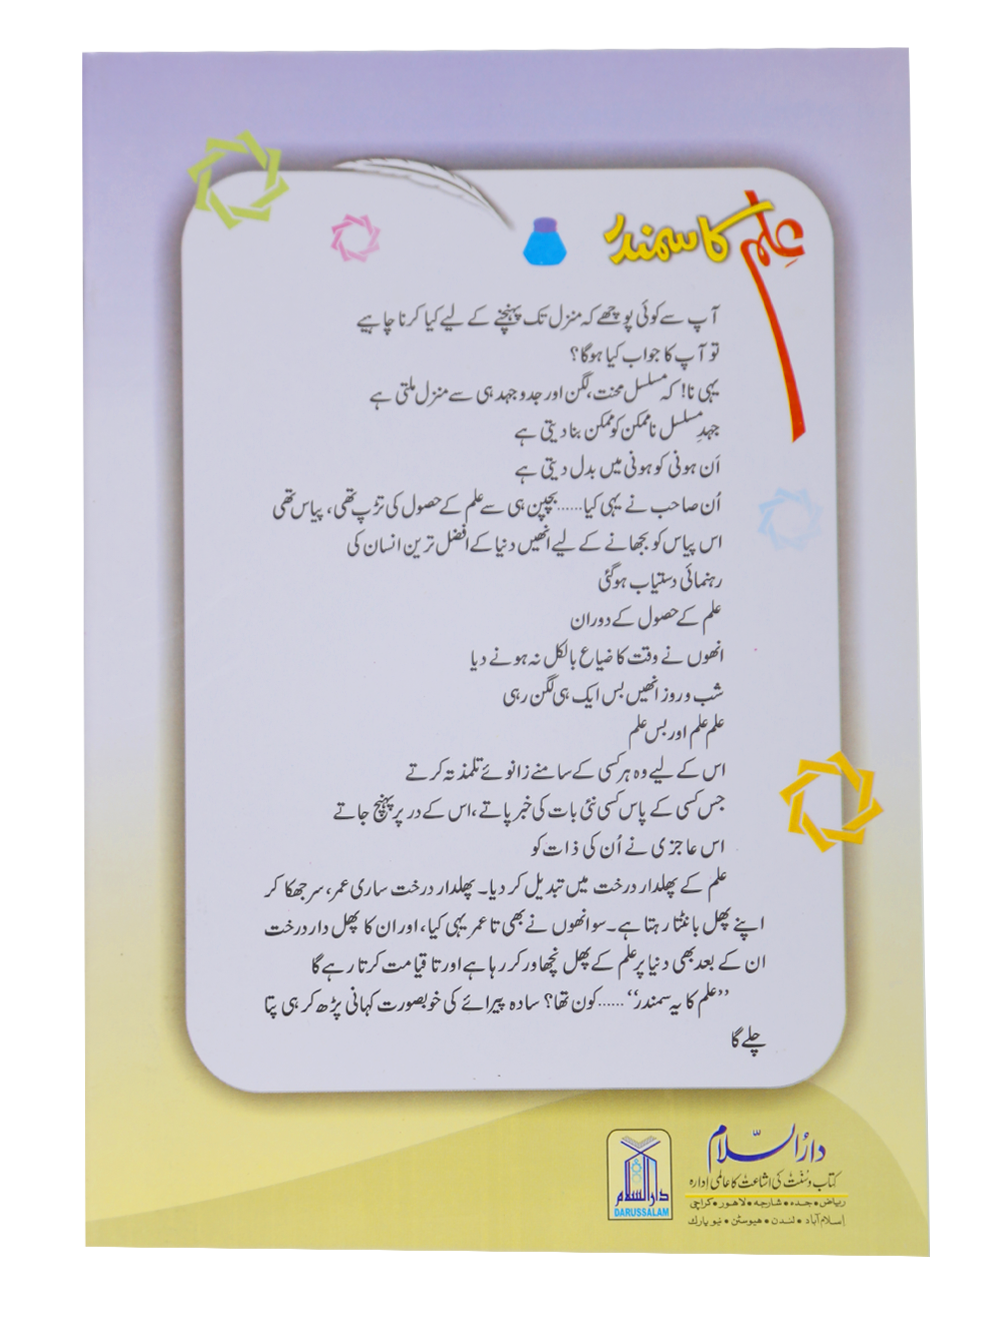 علم کا سمندر
آپ سے کوئی پوچھے کہ منزل تک پہنچنے کے لیے کیا کرنا چاہیے
تو آپ کا جواب کیا ہوگا؟
یہی نا! کہ مسلسل محنت، لگن اور جدوجہد ہی سے منزل ملتی ہے
جہدِ مسلسل ناممکن کو ممکن بنا دیتی ہے
اَن ہونی کو ہونی میں بدل دیتی ہے
اُن صاحب نے یہی کیا......بچپن ہی سے علم کے حصول کی تڑپ تھی، پیاس تھی
اس پیاس کو بجھانے کے لیے انھیں دنیا کے افضل ترین انسان کی
رہنمائی دستیاب ہوگئی
علم کے حصول کے دوران
انھوں نے وقت کا ضیاع بالکل نہ ہونے دیا
شب و روز انھیں بس ایک ہی لگن رہی
علم علم اور بس علم
اس کے لیے وہ ہر کسی کے سامنے زانوئے تلمذ تہ کرتے
جس کسی کے پاس کسی نئی بات کی خبر پاتے، اس کے در پر پہنچ جاتے
اس عاجزی نے اُن کی ذات کو
علم کے پھلدار درخت میں تبدیل کر دیا۔ پھلدار درخت ساری عمر، سر جھکا کر
اپنے پھل بانٹتا رہتا ہے۔ سو انھوں نے بھی تا عمر یہی کیا، اور ان کا پھل دار درخت
ان کے بعد بھی دنیا پر علم کے پھل نچھاور کر رہا ہے اور تا قیامت کرتا رہے گا
’’علم کا یہ سمندر‘‘......کون تھا؟ سادہ پیرائے کی خوبصورت کہانی پڑھ کر ہی پتا
چلے گا
دارُالسّلام
کتاب و سنّت کی اشاعت کا عالمی ادارہ
ریاض • جدہ • شارجہ • لاہور • کراچی
اسلام آباد • لندن • ہیوسٹن • نیو یارک
دارالسلام
DARUSSALAM